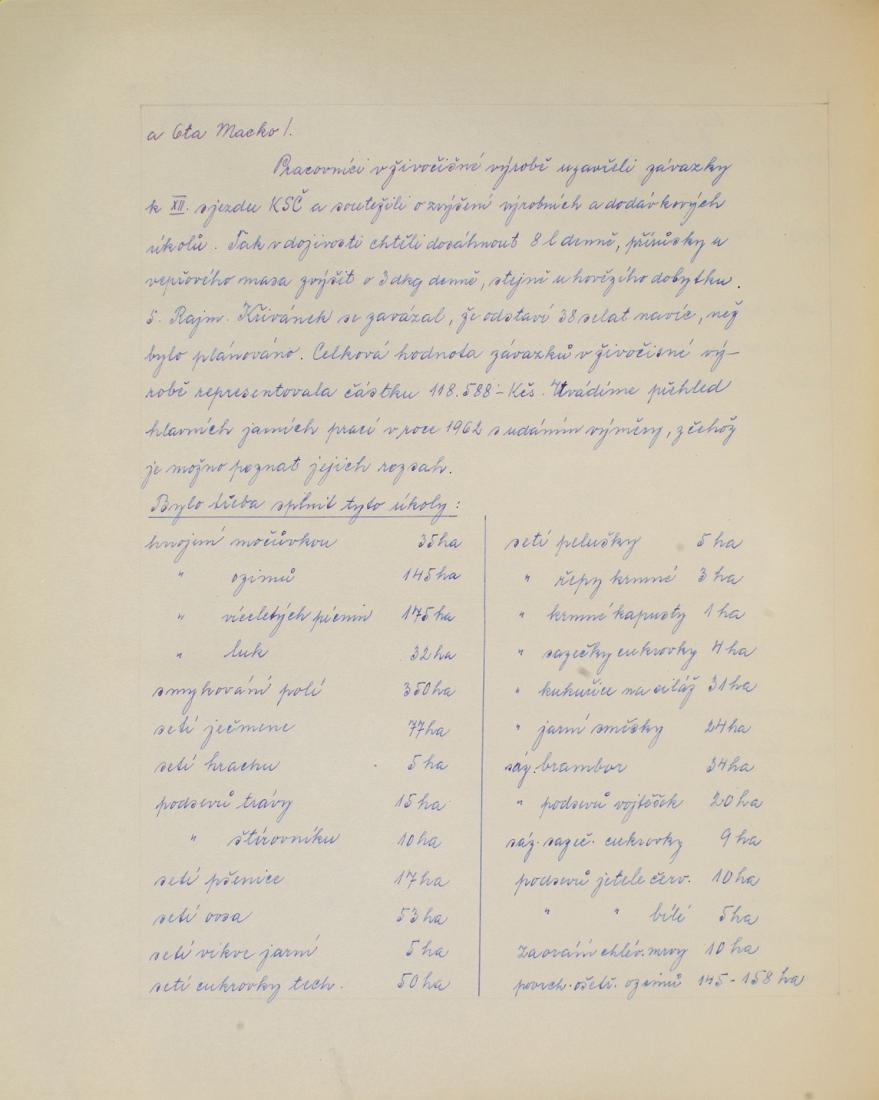 a Ota Macko/.
Pracovníci v živočišné výrobě uzavřeli závazky
k XII. sjezdu KSČ a soutežili o zvýšení výrobních a dodávkových
úkolů. Tak v dojivosti chtěli dosáhnout 8 l denně, přírůsky u
vepřového masa zvýšit o 3 dkg denně, stejně u hovězího dobytku.
S. Rajm. Křivánek se zavázal, že odstaví 38 selat navíc, než
bylo plánováno. Celková hodnota závazků v živočisné vý-
robě representovala částku 118.588 - Kčs. Uvádíme přehled
hlavních jarních prací v roce 1962 s udáním výměry, z čehož
je možno poznat jejich rozsah.
Bylo třeba splnit tyto úkoly:
hnojení močůvkou 35 ha
" ozimů 145 ha
" víceletých pícnin 175 ha
" luk 32 ha
smykování polí 350 ha
setí ječmene 77 ha
setí hrachu 5 ha
podsevů trávy 15 ha
" štírovníku 10 ha
setí pšenice 17 ha
setí ovsa 53 ha
setí vikve jarní 5 ha
setí cukrovky tech. 50 ha
setí pelušky 5 ha
" řepy krmné 3 ha
" krmné kapusty 1 ha
" sazečky cukrovky 4 ha
" kukuřice na siláž 31 ha
" jarní směsky 24 ha
sáz. brambor 34 ha
" podsevů vojtěšek 20 ha
sáz. sazeč. cukrovky 9 ha
podsevů jetele červ. 10 ha
" " bílé 5 ha
Zaorání chlév. mrvy 10 ha
povrch. ošetř. ozimů 145 - 158 ha